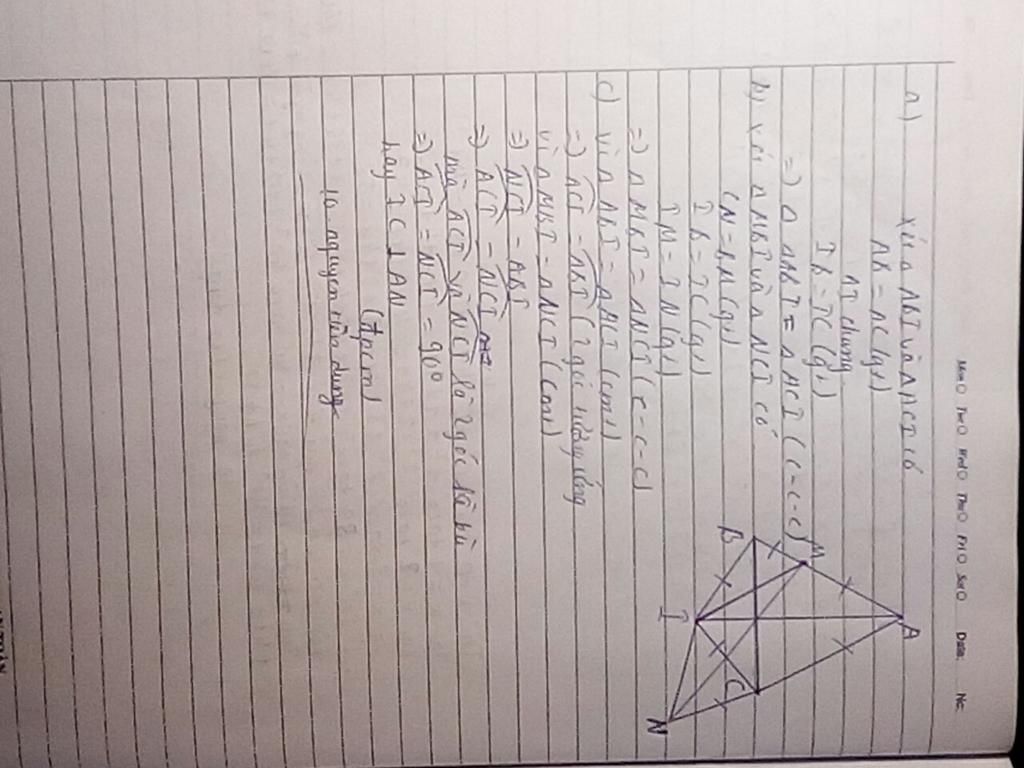 Mon Tue Wed Thu Fri Sat Date: No:
a) Xét Δ ABI và Δ ACI có
AB = AC (gt)
AI chung
IB = IC (gt)
=) Δ ABI = Δ ACI (c-c-c)
b) Xét Δ MBI và Δ NCI có
CN = BM (gt)
IB = IC (gt)
IM = IN (gt)
=) Δ MBI = Δ NCI (c-c-c)
c) vì Δ ABI = Δ ACI (cmt)
=) ACI = ABI (2 góc tương ứng
vì Δ MBI = Δ NCI (cmt)
=) NCI = ABI
=) ACI = NCI
mà ACI và NCI là 2 góc kề bù
=) ACI = NCI = 90°
hay IC ⊥ AN
(đpcm)
nguyen dung
A
M
B
I
C
N